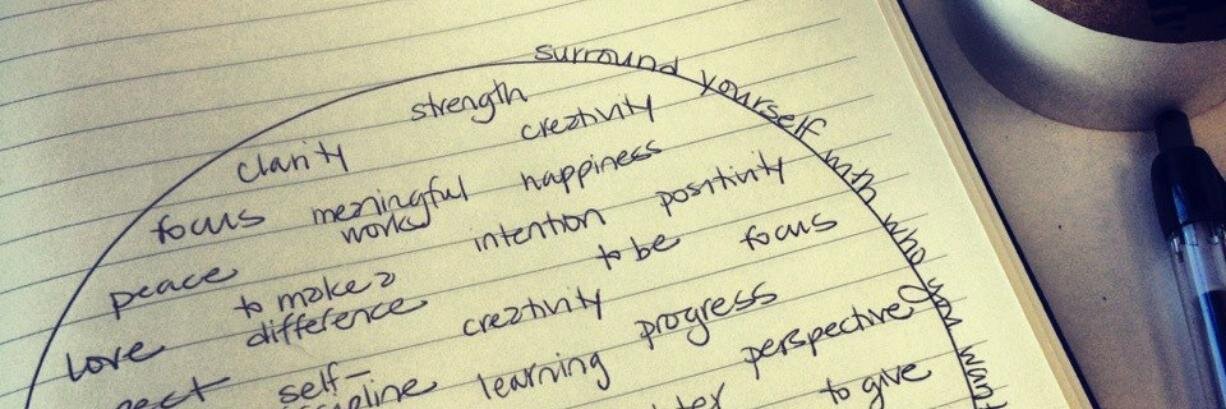 surround yourself with who you want
strength
creativity
clarity
happiness
meaningful
work
focus
positivity
intention
to be
focus
peace
to make a
difference
creativity
progress
love
perspective
self-
learning
to give